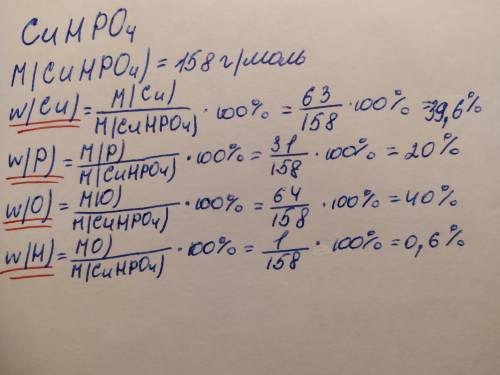 CuHPO₄
M(CuHPO₄) = 158 г/моль
w(Cu) = M(Cu) / M(CuHPO₄) · 100% = 63 / 158 · 100% = 39,6%
w(P) = M(P) / M(CuHPO₄) · 100% = 31 / 158 · 100% = 20%
w(O) = M(O) / M(CuHPO₄) · 100% = 64 / 158 · 100% = 40%
w(H) = M(O) / M(CuHPO₄) · 100% = 1 / 158 · 100% = 0,6%